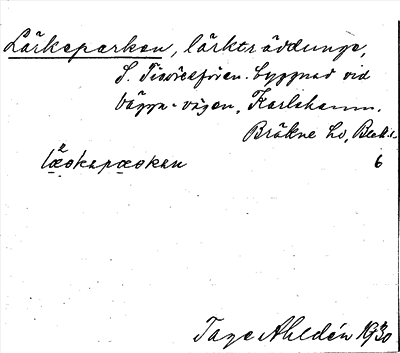 Lärkeparken, lärkträddunge,
S. Tivolifören. byggnad vid
Vägga-vägen, Karlshamn.
Bräkne hd, Blek.
læ²okapæokan 6
Tage Ahldén 1930